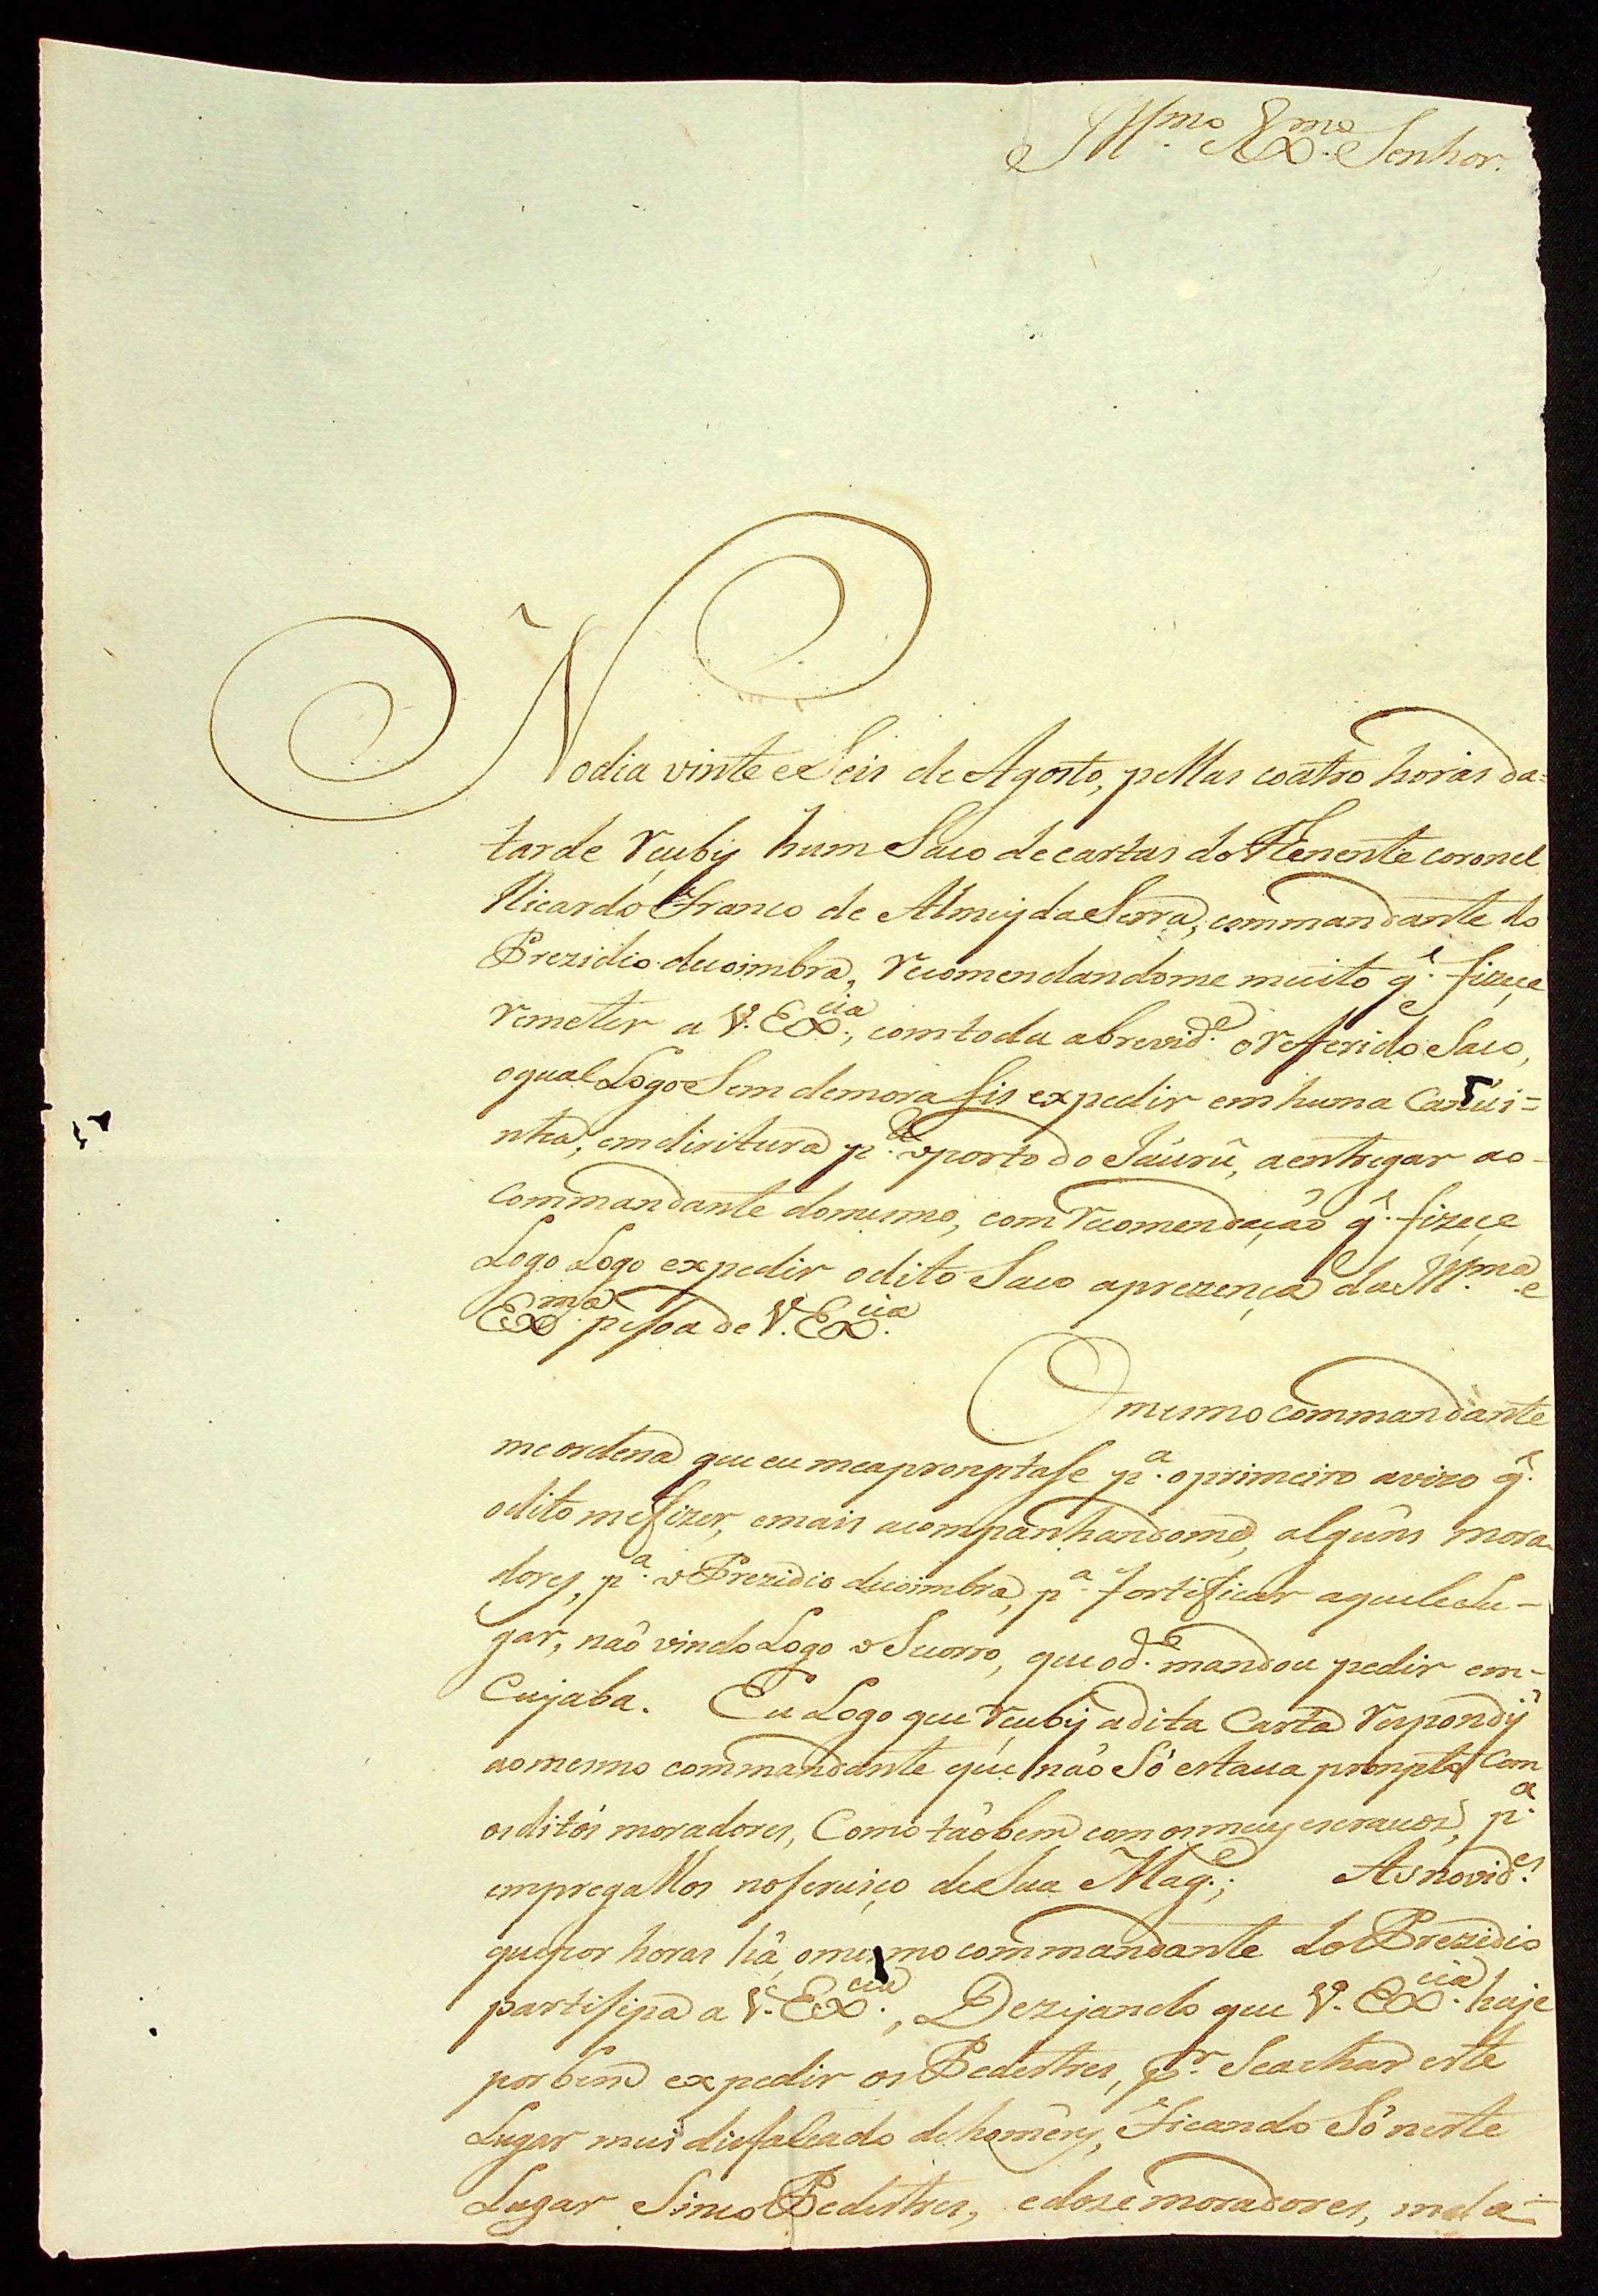 Ill.mo e Ex.mo Senhor.
No dia vinte e Seis de Agosto, pellas coatro horas da=
tarde recebÿ hum Saco de cartas do Tenente coronel
Ricardo Franco de Almeyda Serra, commandante do
Prezidio de coimbra, recomendandome muito q.e fizeçe
remeter a V. Ex.cia, com toda a brevid.e o refferido Saco,
o qual Logo Sem demora fis expedir em huma Canúi=
nha, em diritura p.a o porto do Jáurû, a entregar ao-
commandante do mesmo, com recomendação q.e fizeçe
Logo Logo expedir o dito Saco a prezença da Ill.ma e
Ex.ma pesoa de V. Ex.cia
O mesmo commandante
me ordena que eu me apronptase p.a o primeiro avizo q.e
o dito me fizer, e mais acompanhandome, algûns mora-
dores, p.a o Prezidio de coimbra, p.a fortificar aquele Lu-
gar, naô vindo Logo o Sucorro, que o d.e mandou pedir em-
Cuyaba. Eu Logo que recebÿ a dita Carta respondÿ
ao mesmo commandante que não Só estaua pronpto com
os ditos moradores, Como táobem com os meus escrauos, p.a
empregallos no seruiço de Sua Mag.e; As novid.es
que por horas há, o mesmo commandante do Prezidio
partisipa a V. Ex.cia, Dezejando que V. Ex.cia haje
por bem expedir os Pedestres, p.r Se achar este
Lugar mui disfalcado de homêns, Ficando Só neste
Lugar Sinco Pedestres, e doze moradores, me la-